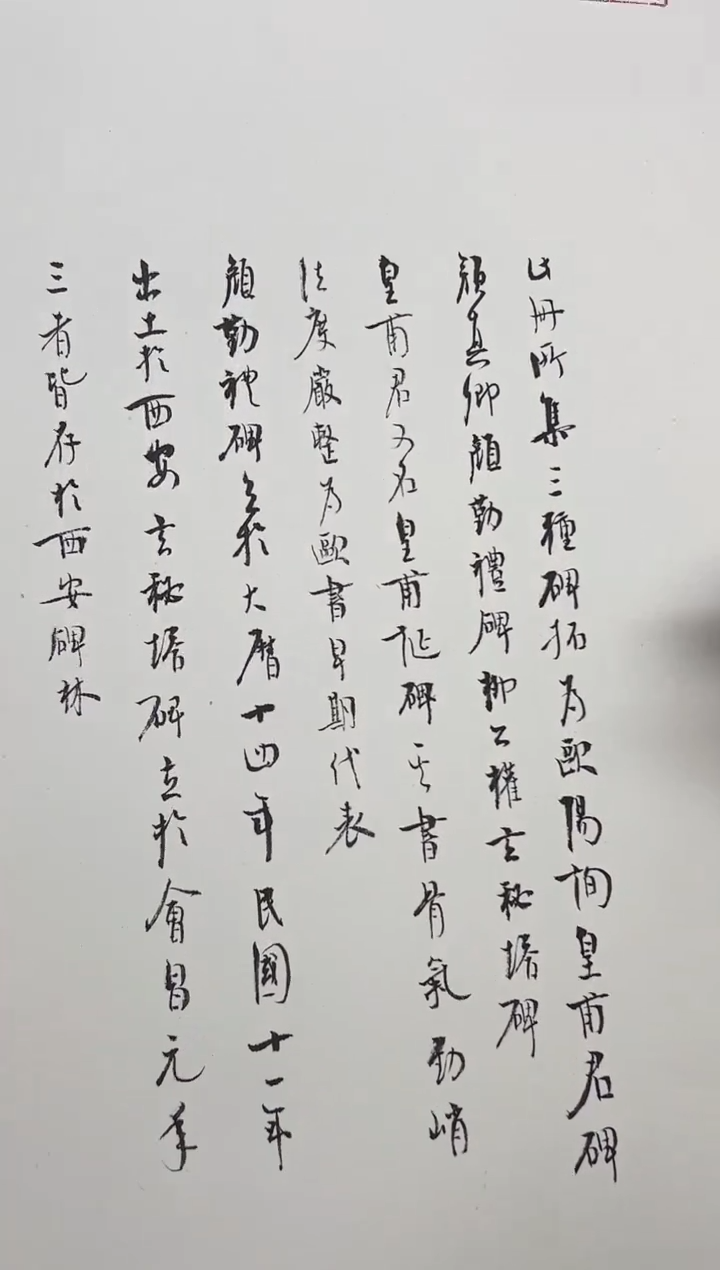 此冊所集三種碑拓為歐陽詢皇甫君碑
顏真卿顏勤禮碑柳公權玄秘塔碑
皇甫君又名皇甫誕碑其書骨氣勁峭
法度嚴整為歐書早期代表
顏勤禮碑立於大曆十四年民國十一年
出土於西安玄秘塔碑立於會昌元年
三者皆存於西安碑林